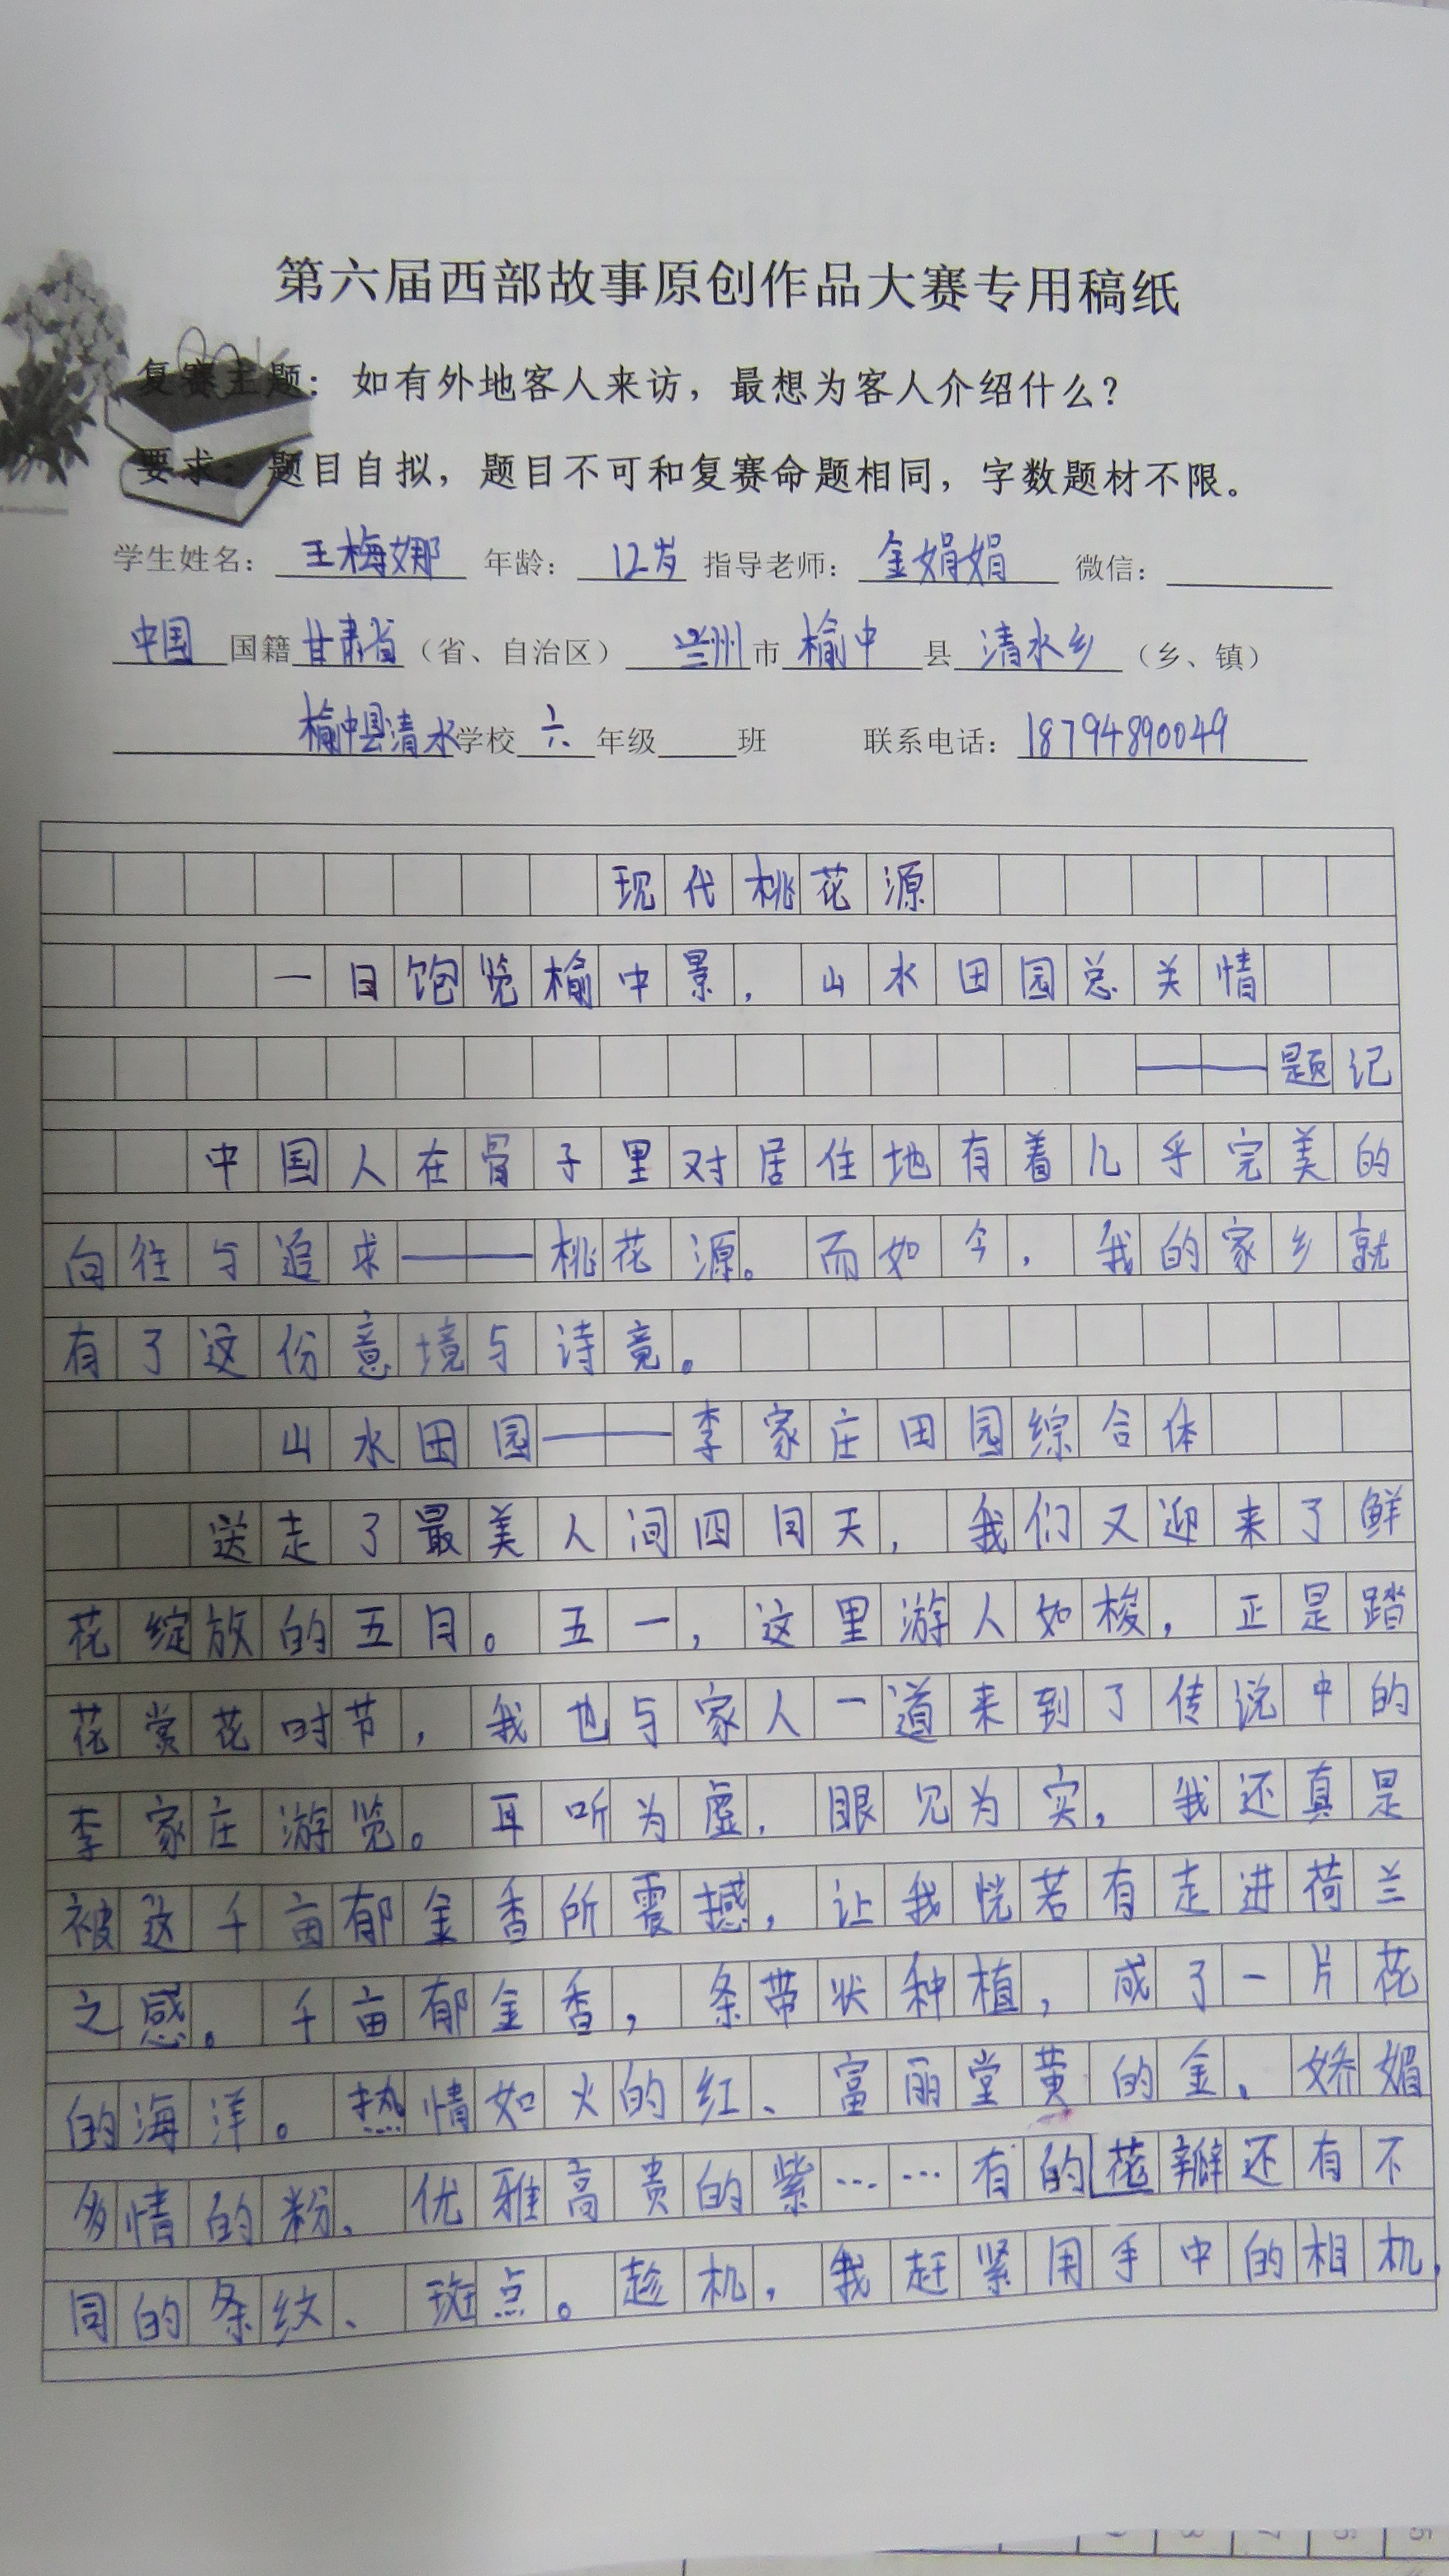 第六届西部故事原创作品大赛专用稿纸
复赛主题：如有外地客人来访，最想为客人介绍什么？
要求：题目自拟，题目不可和复赛命题相同，字数题材不限。
学生姓名：王梅娜 年龄：12岁 指导老师：金娟娟 微信：
中国 国籍 甘肃省（省、自治区）兰州市 榆中 县 清水乡（乡、镇）
榆中县清水学校 六 年级 班 联系电话：18794890049
现代桃花源
一目饱览榆中景，山水田园总关情
——题记
中国人在骨子里对居住地有着几乎完美的
向往与追求——桃花源。而如今，我的家乡就
有了这份意境与诗竟。
山水田园——李家庄田园综合体
送走了最美人间四月天，我们又迎来了鲜
花绽放的五月。五一，这里游人如梭，正是踏
花赏花时节，我也与家人一道来到了传说中的
李家庄游览。耳听为虚，眼见为实，我还真是
被这千亩郁金香所震撼，让我恍若有走进荷兰
之感。千亩郁金香，条带状种植，成了一片花
的海洋。热情如火的红、富丽堂黄的金、娇媚
多情的粉、优雅高贵的紫……有的花瓣还有不
同的条纹、斑点。趁机，我赶紧用手中的相机，